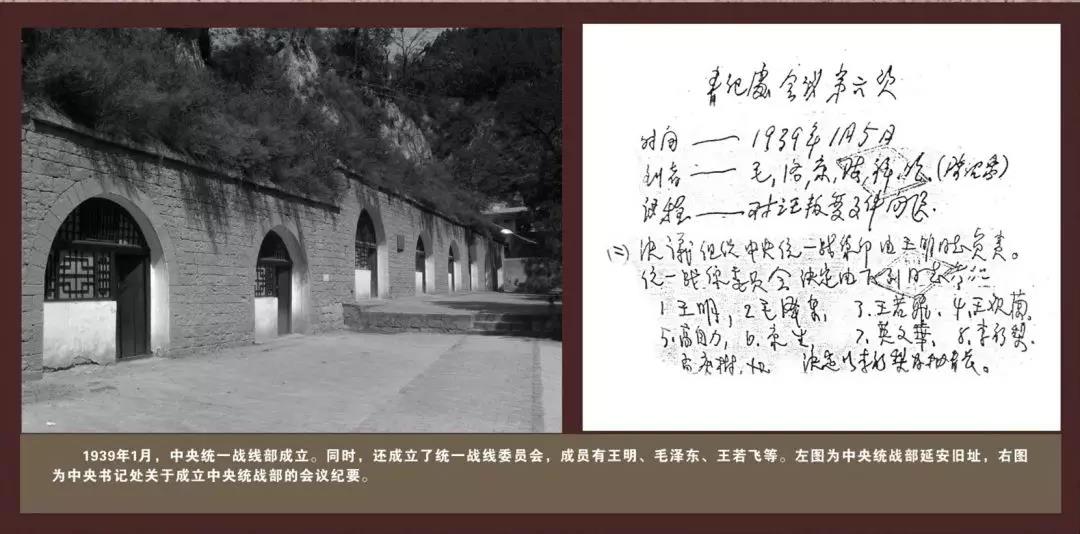 会议第六
时间——1939年1月5日
到者——毛,洛,康,陈,
议程——
(二)决议组织中央统一战线部由王明同志负责。
统一战线委员会决定由下列同志
1.王明, 2.毛泽东, 3.王若飞, 4.王
5.高自力, 6.康生, 7. 8.李初梨.
决定以李初梨为秘书长。
1939年1月，中央统一战线部成立。同时，还成立了统一战线委员会，成员有王明、毛泽东、王若飞等。左图为中央统战部延安旧址，右图
为中央书记处关于成立中央统战部的会议纪要。